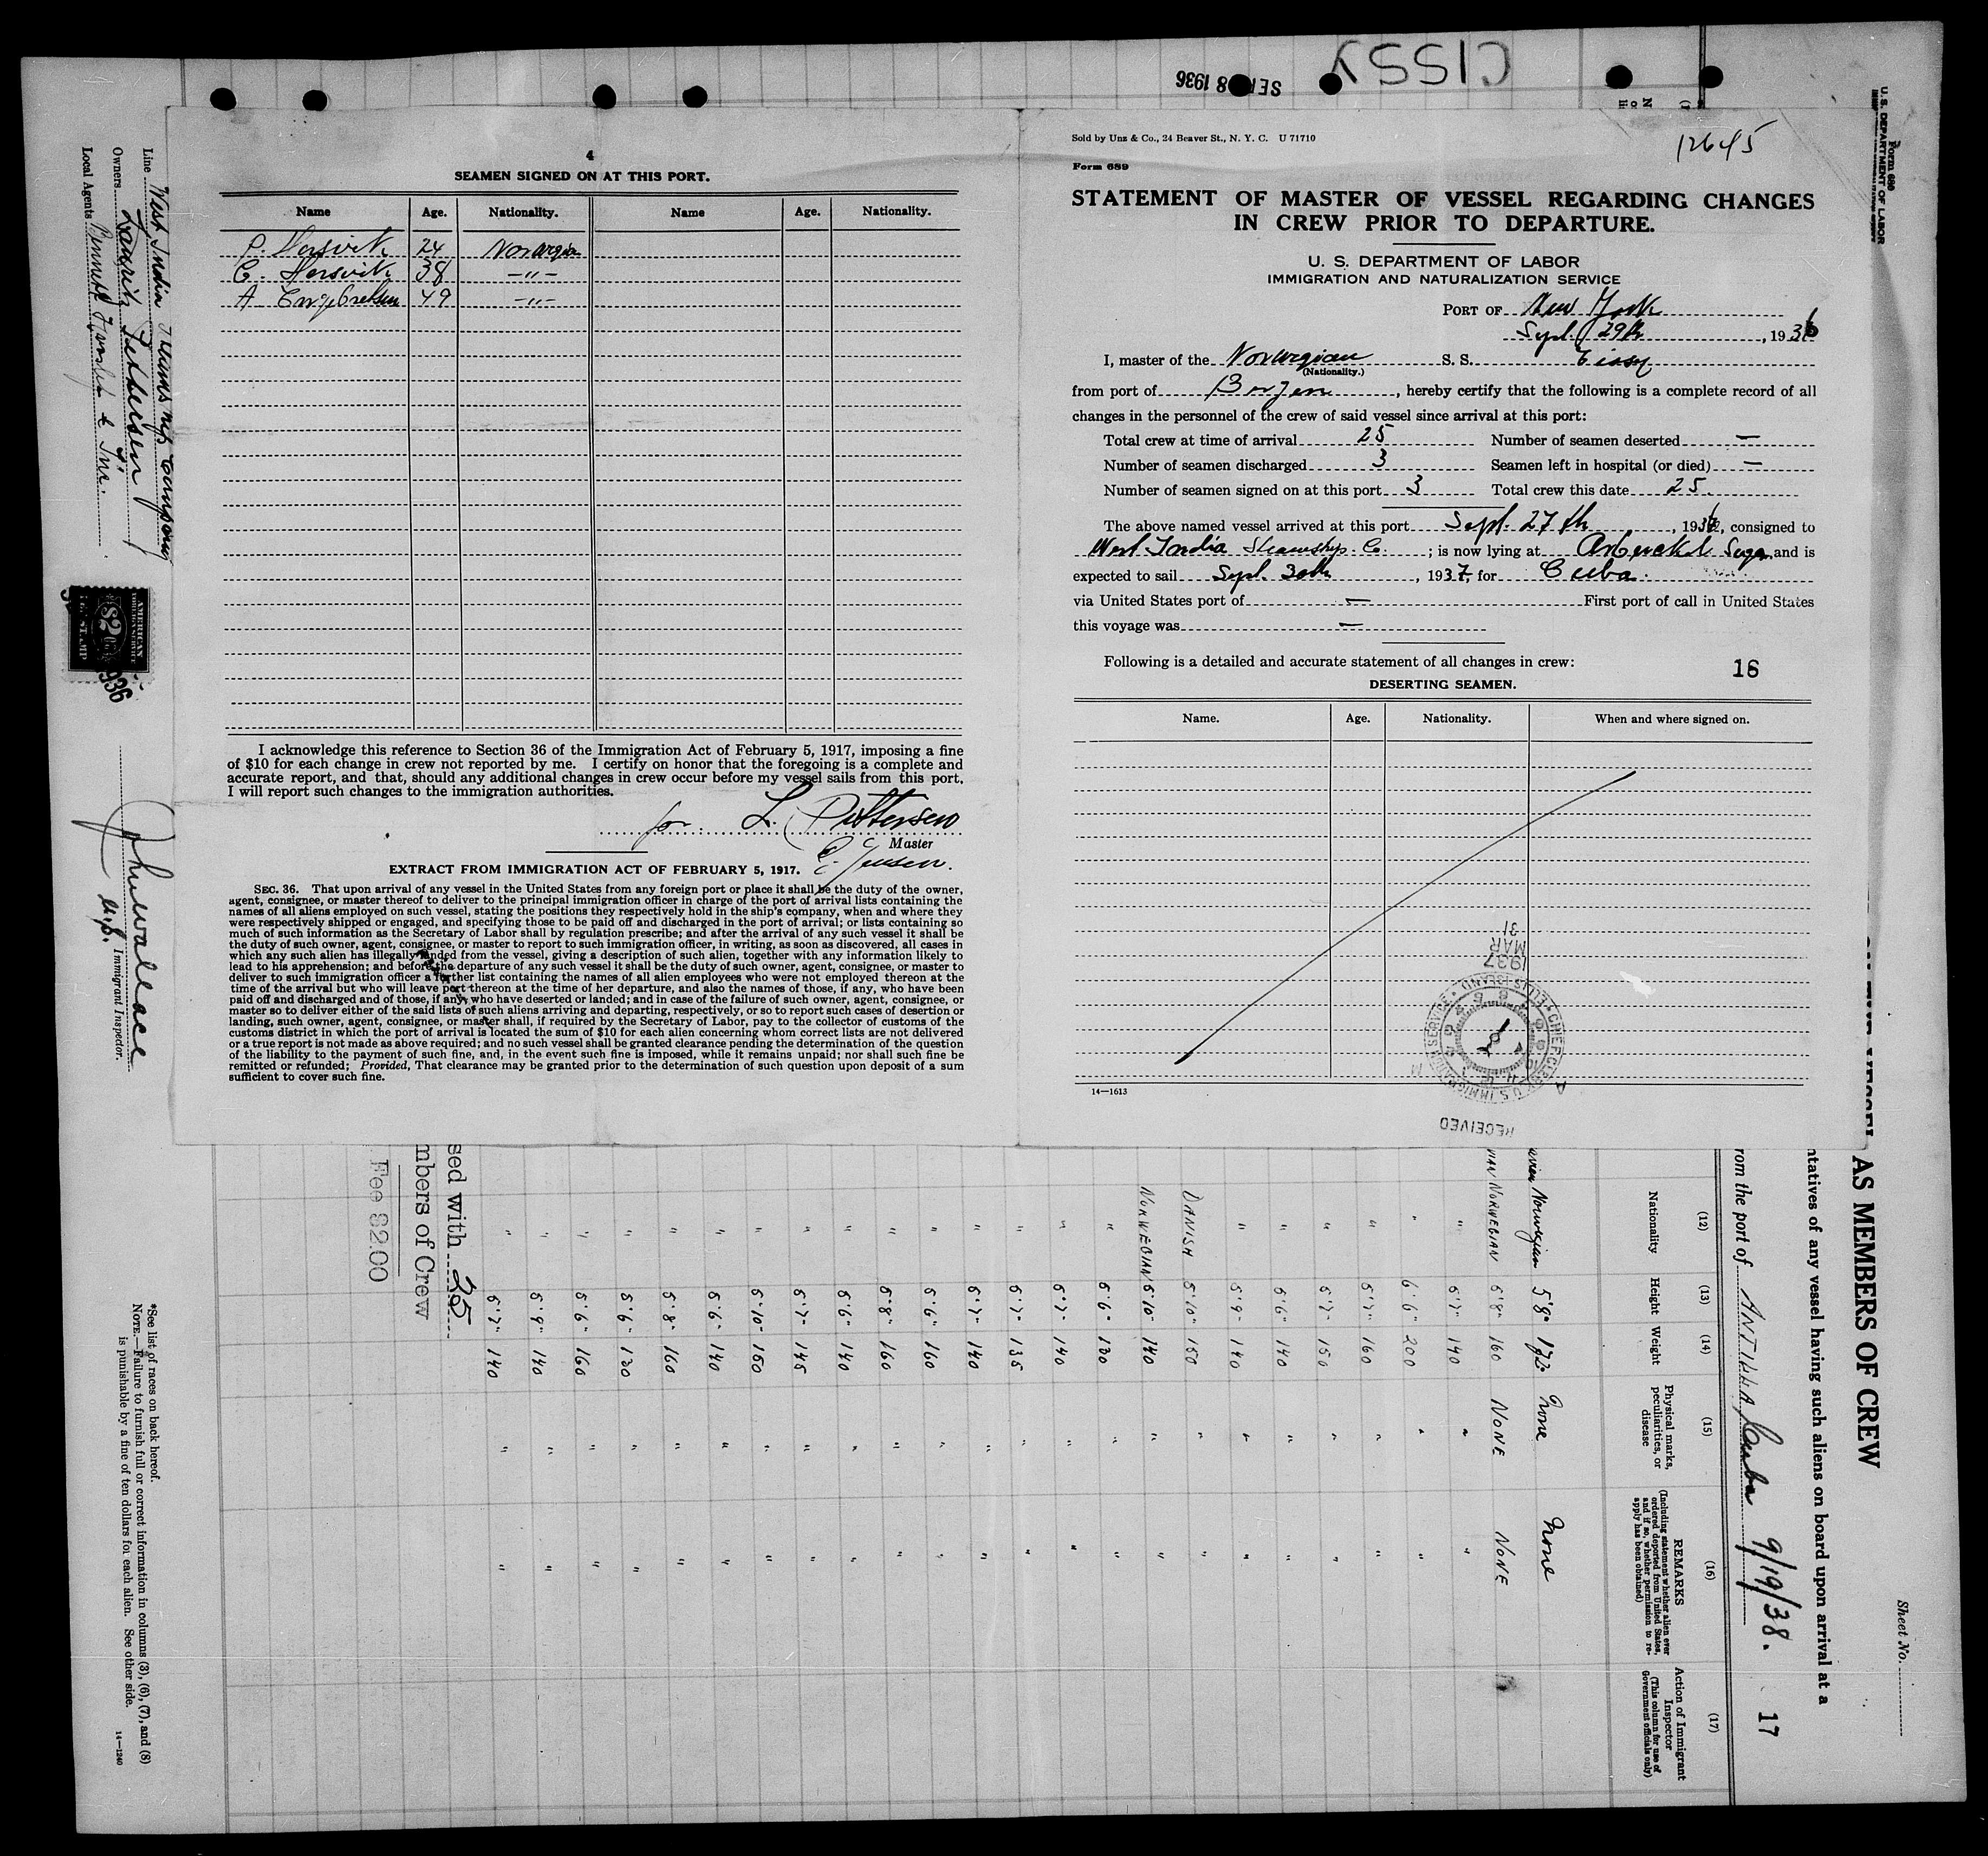 CISSY
SEP 28 1936
4
SEAMEN SIGNED ON AT THIS PORT.
Name Age. Nationality. Name Age. Nationality.
P. Horsvik 24 Norwegian
C. Horsvik 38 -"-
A. Engebretsen 49 -"-
I acknowledge this reference to Section 36 of the Immigration Act of February 5, 1917, imposing a fine
of $10 for each change in crew not reported by me. I certify on honor that the foregoing is a complete and
accurate report, and that, should any additional changes in crew occur before my vessel sails from this port,
I will report such changes to the immigration authorities.
for L. Pettersen
Master
E. Jensen.
EXTRACT FROM IMMIGRATION ACT OF FEBRUARY 5, 1917.
SEC. 36. That upon arrival of any vessel in the United States from any foreign port or place it shall be the duty of the owner,
agent, consignee, or master thereof to deliver to the principal immigration officer in charge of the port of arrival lists containing the
names of all aliens employed on such vessel, stating the positions they respectively hold in the ship's company, when and where they
were respectively shipped or engaged, and specifying those to be paid off and discharged in the port of arrival; or lists containing so
much of such information as the Secretary of Labor shall by regulation prescribe; and after the arrival of any such vessel it shall be
the duty of such owner, agent, consignee, or master to report to such immigration officer, in writing, as soon as discovered, all cases in
which any such alien has illegally landed from the vessel, giving a description of such alien, together with any information likely to
lead to his apprehension; and before the departure of any such vessel it shall be the duty of such owner, agent, consignee, or master to
deliver to such immigration officer a further list containing the names of all alien employees who were not employed thereon at the
time of the arrival but who will leave port thereon at the time of her departure, and also the names of those, if any, who have been
paid off and discharged and of those, if any, who have deserted or landed; and in case of the failure of such owner, agent, consignee, or
master so to deliver either of the said lists of such aliens arriving and departing, respectively, or so to report such cases of desertion or
landing, such owner, agent, consignee, or master shall, if required by the Secretary of Labor, pay to the collector of customs of the
customs district in which the port of arrival is located the sum of $10 for each alien concerning whom correct lists are not delivered
or a true report is not made as above required; and no such vessel shall be granted clearance pending the determination of the question
of the liability to the payment of such fine, and, in the event such fine is imposed, while it remains unpaid; nor shall such fine be
remitted or refunded; Provided, That clearance may be granted prior to the determination of such question upon deposit of a sum
sufficient to cover such fine.
Sold by Unz & Co., 24 Beaver St., N. Y. C. U 71710
12645
Form 689
STATEMENT OF MASTER OF VESSEL REGARDING CHANGES
IN CREW PRIOR TO DEPARTURE.
U. S. DEPARTMENT OF LABOR
IMMIGRATION AND NATURALIZATION SERVICE
PORT OF New York
Sept. 29th, 1936
I, master of the Norwegian S. S. Cissy
(Nationality.)
from port of Bergen, hereby certify that the following is a complete record of all
changes in the personnel of the crew of said vessel since arrival at this port:
Total crew at time of arrival 25 Number of seamen deserted —
Number of seamen discharged 3 Seamen left in hospital (or died) —
Number of seamen signed on at this port 3 Total crew this date 25.
The above named vessel arrived at this port Sept. 27th, 1936, consigned to
West India Steamship. Co.; is now lying at Arbuckel Sugar and is
expected to sail Sept. 30th, 1937, for Cuba.
via United States port of — First port of call in United States
this voyage was —
Following is a detailed and accurate statement of all changes in crew:
16
DESERTING SEAMEN.
Name. Age. Nationality. When and where signed on.
1937
MAR
31
CHIEF CLERK U.S. IMMIGRATION SERVICE ELLIS ISLAND
RECEIVED
14—1613
Line West India Steamship Company
Owners Lauritz
Local Agents Bennett & Inc.
AMERICAN
FOREIGN SERVICE
$2
FEE STAMP
1936
Immigrant Inspector.
Form 680
U. S. DEPARTMENT OF LABOR
Sheet No.
AS MEMBERS OF CREW
ntatives of any vessel having such aliens on board upon arrival at a
rom the port of ANTILLA, Cuba 9/19/38. 17
(12) (13) (14) (15) (16) (17)
Nationality Height Weight Physical marks, peculiarities, or disease REMARKS (Including statement whether alien ever ordered deported from United States, and if so, whether permission to reapply has been obtained) Action of Immigrant Inspector (This column for use of Government officials only)
Norwegian 5'8" 172 None None
NORWEGIAN 5'8" 160 NONE NONE
" 5'7" 140 " "
" 6'6" 200 " "
" 5'7" 160 " "
" 5'7" 150 " "
" 5'6" 140 " "
" 5'9" 140 " "
DANISH 5'10" 150 " "
NORWEGIAN 5'10" 140 " "
" 5'6" 130 " "
" 5'7" 140 " "
" 5'7" 135 " "
" 5'7" 140 " "
" 5'6" 160 " "
" 5'8" 160 " "
" 5'6" 140 " "
" 5'7" 145 " "
" 5'10" 150 " "
" 5'6" 140 " "
" 5'8" 160 " "
" 5'6" 130 " "
" 5'6" 160 " "
" 5'9" 140 " "
" 5'7" 140 " "
sed with 25
mbers of Crew
Fee $2.00
*See list of races on back hereof.
NOTE.—Failure to furnish full or correct information in columns (3), (6), (7), and (8)
is punishable by a fine of ten dollars for each alien. See other side.
14—1240